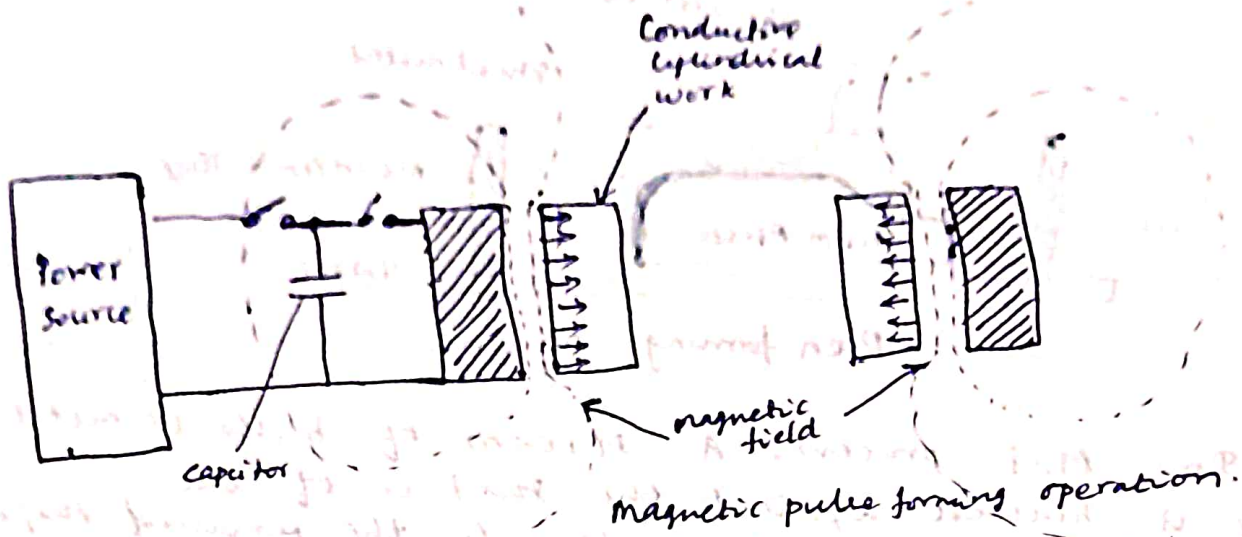 Conductive
Cylindrical
work
Power
source
capcitor
magnetic
field
magnetic pulse forming operation.